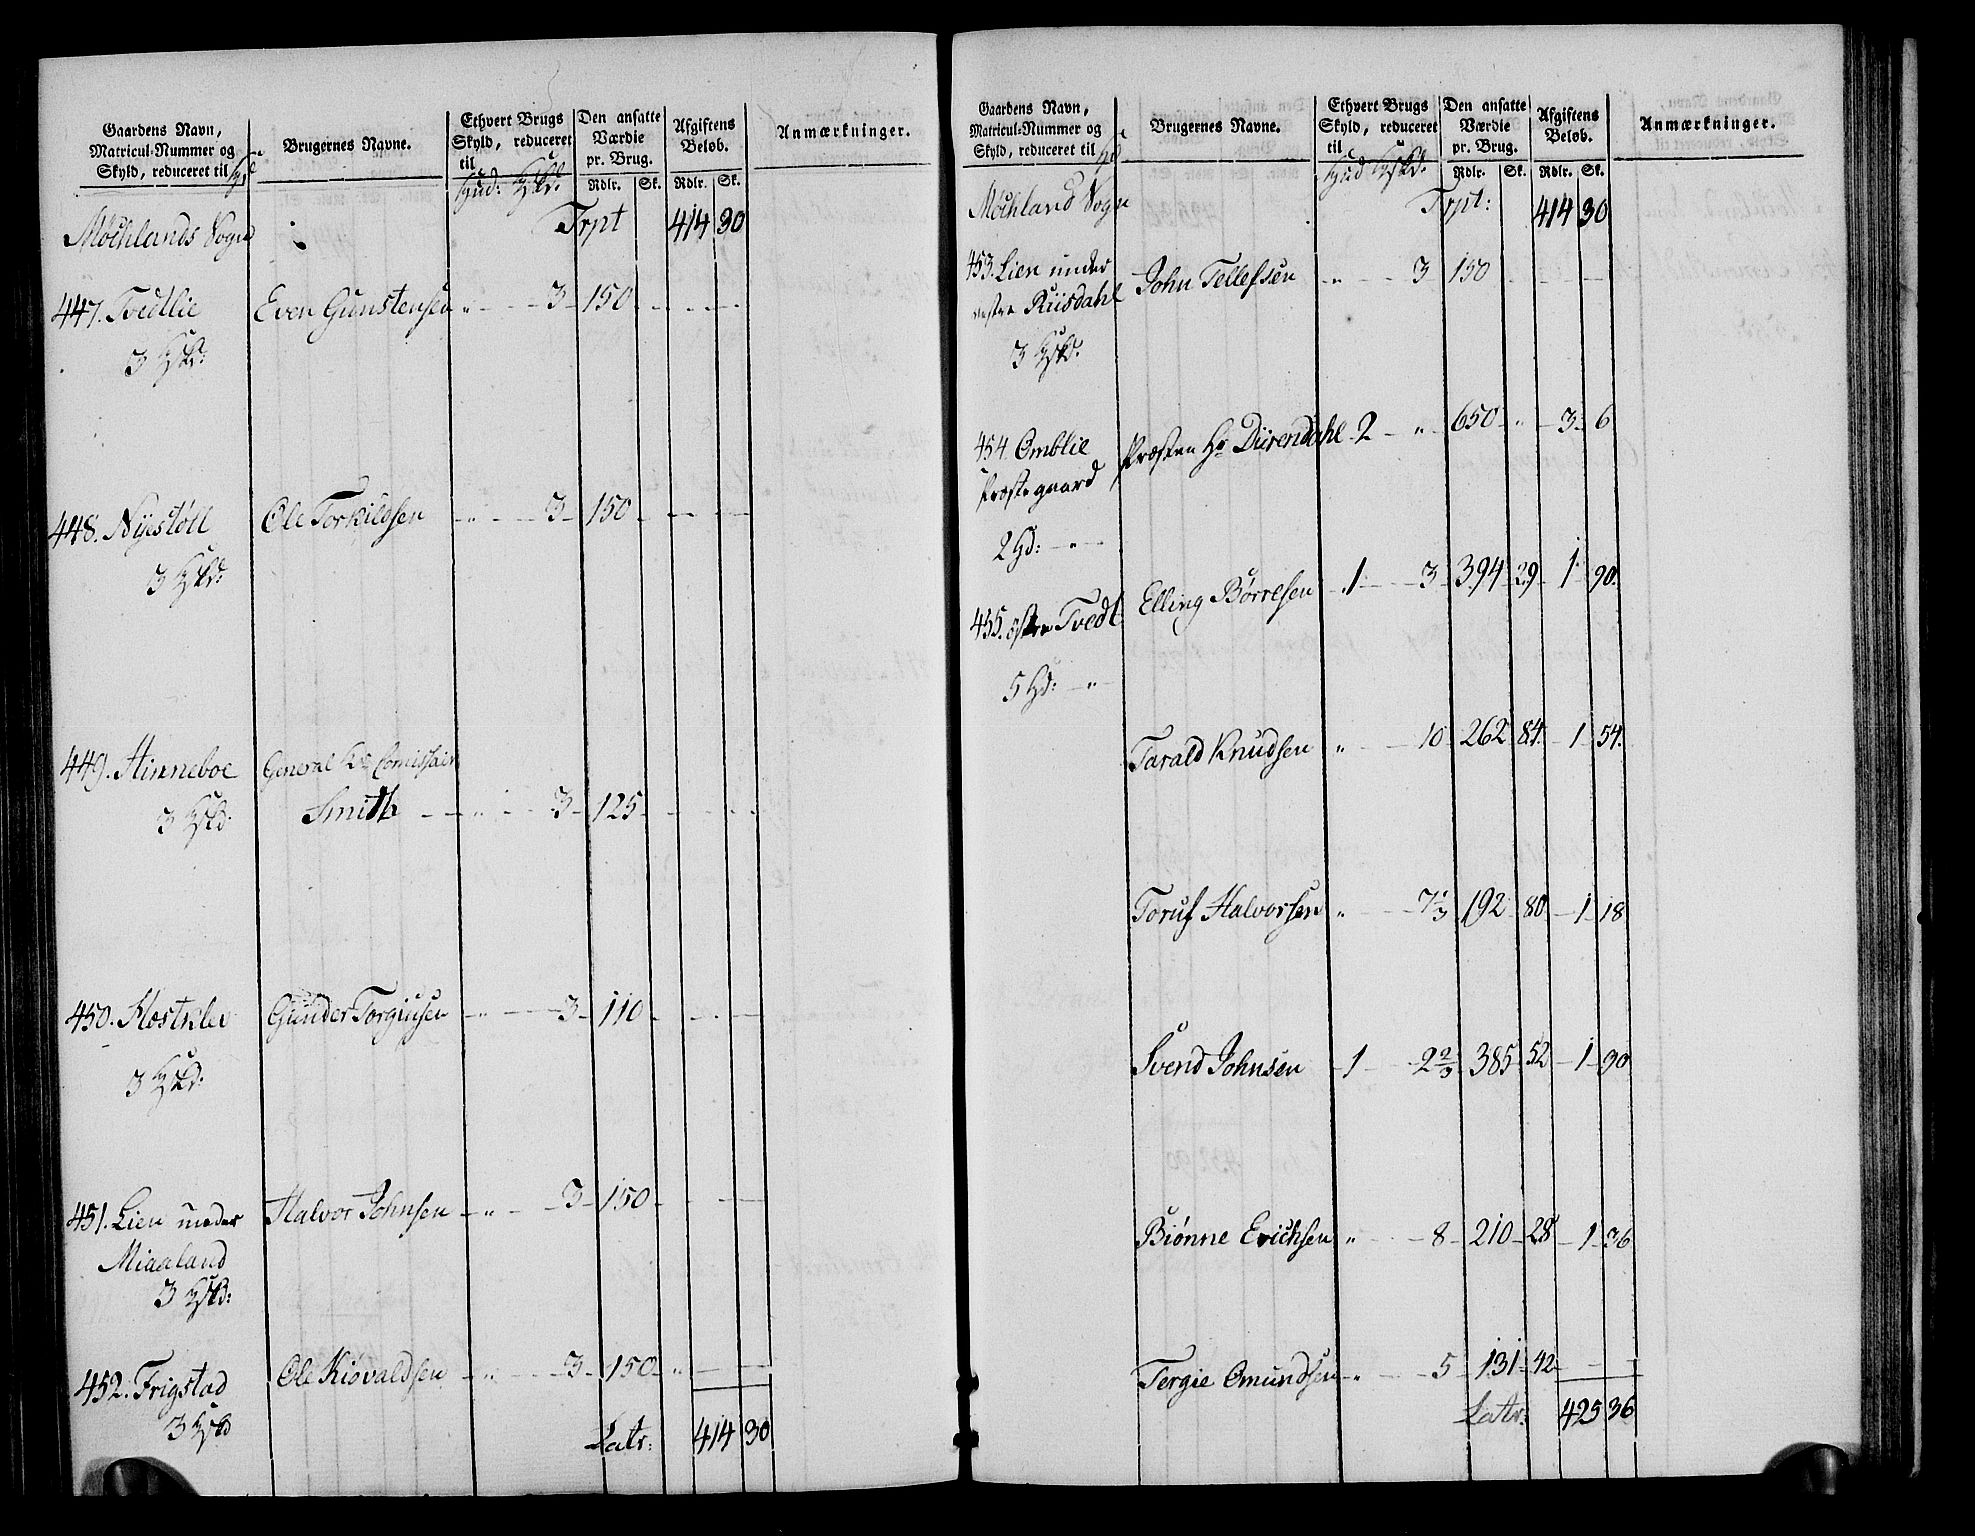 Gaardens Navn, Matricul-Nummer og Skyld, reduceret til | Brugernes Navne. | Ethvert Brugs Skyld, reduceret til Hud: Hskd: | Den ansatte Værdie pr. Brug. Rdlr. Sk. | Afgiftens Beløb. Rdlr. Sk. | Anmærkninger.
Møchlands Sogn Trpt 414 30
447. Tvedtlie Even Gunstensen „ 3 150
3 Hskd:
448. Nÿestøll Ole Torkildsen „ 3 150
3 Hskd:
449. Hinneboe General Comissair
3 Hskd: Smith „ 3 125
450. Gunder Torgiusen „ 3 110
3 Hskd:
451. Lien under Halvor Johnsen „ 3 150
Miaaland
3 Hskd:
452. Frigstad Ole Kiøvaldsen „ 3 150 „
3 Hskd
Latr: 414 30
Gaardens Navn, Matricul-Nummer og Skyld, reduceret til | Brugernes Navne. | Ethvert Brugs Skyld, reduceret til Hud Hskd: | Den ansatte Værdie pr. Brug. Rdlr. Sk. | Afgiftens Beløb. Rdlr. Sk. | Anmærkninger.
Møchland Sogn Trpt: 414 30
453. Lien under John Tellefsen „ 3 150
vestre Riisdahl
3 Hskd:
454. Omblie Præsten Hr Diirendahl 2 „ 650 „ 3 6
Præstegaard
2 Hd: „
455. østre Tvedt Elling Børresen 1 3 394 29 1 90.
5 Hd: „
Tarald Knudsen „ 10 262 84. 1 54.
Toruf Halvorsen „ 7 1/3 192 80 1 18
Svend Johnsen 1 2 2/3 385 52 1 90
Biønne Erichsen „ 8 210 28 1 36
Tergie Omundsen „ 5 131 42
Latr: 425 36